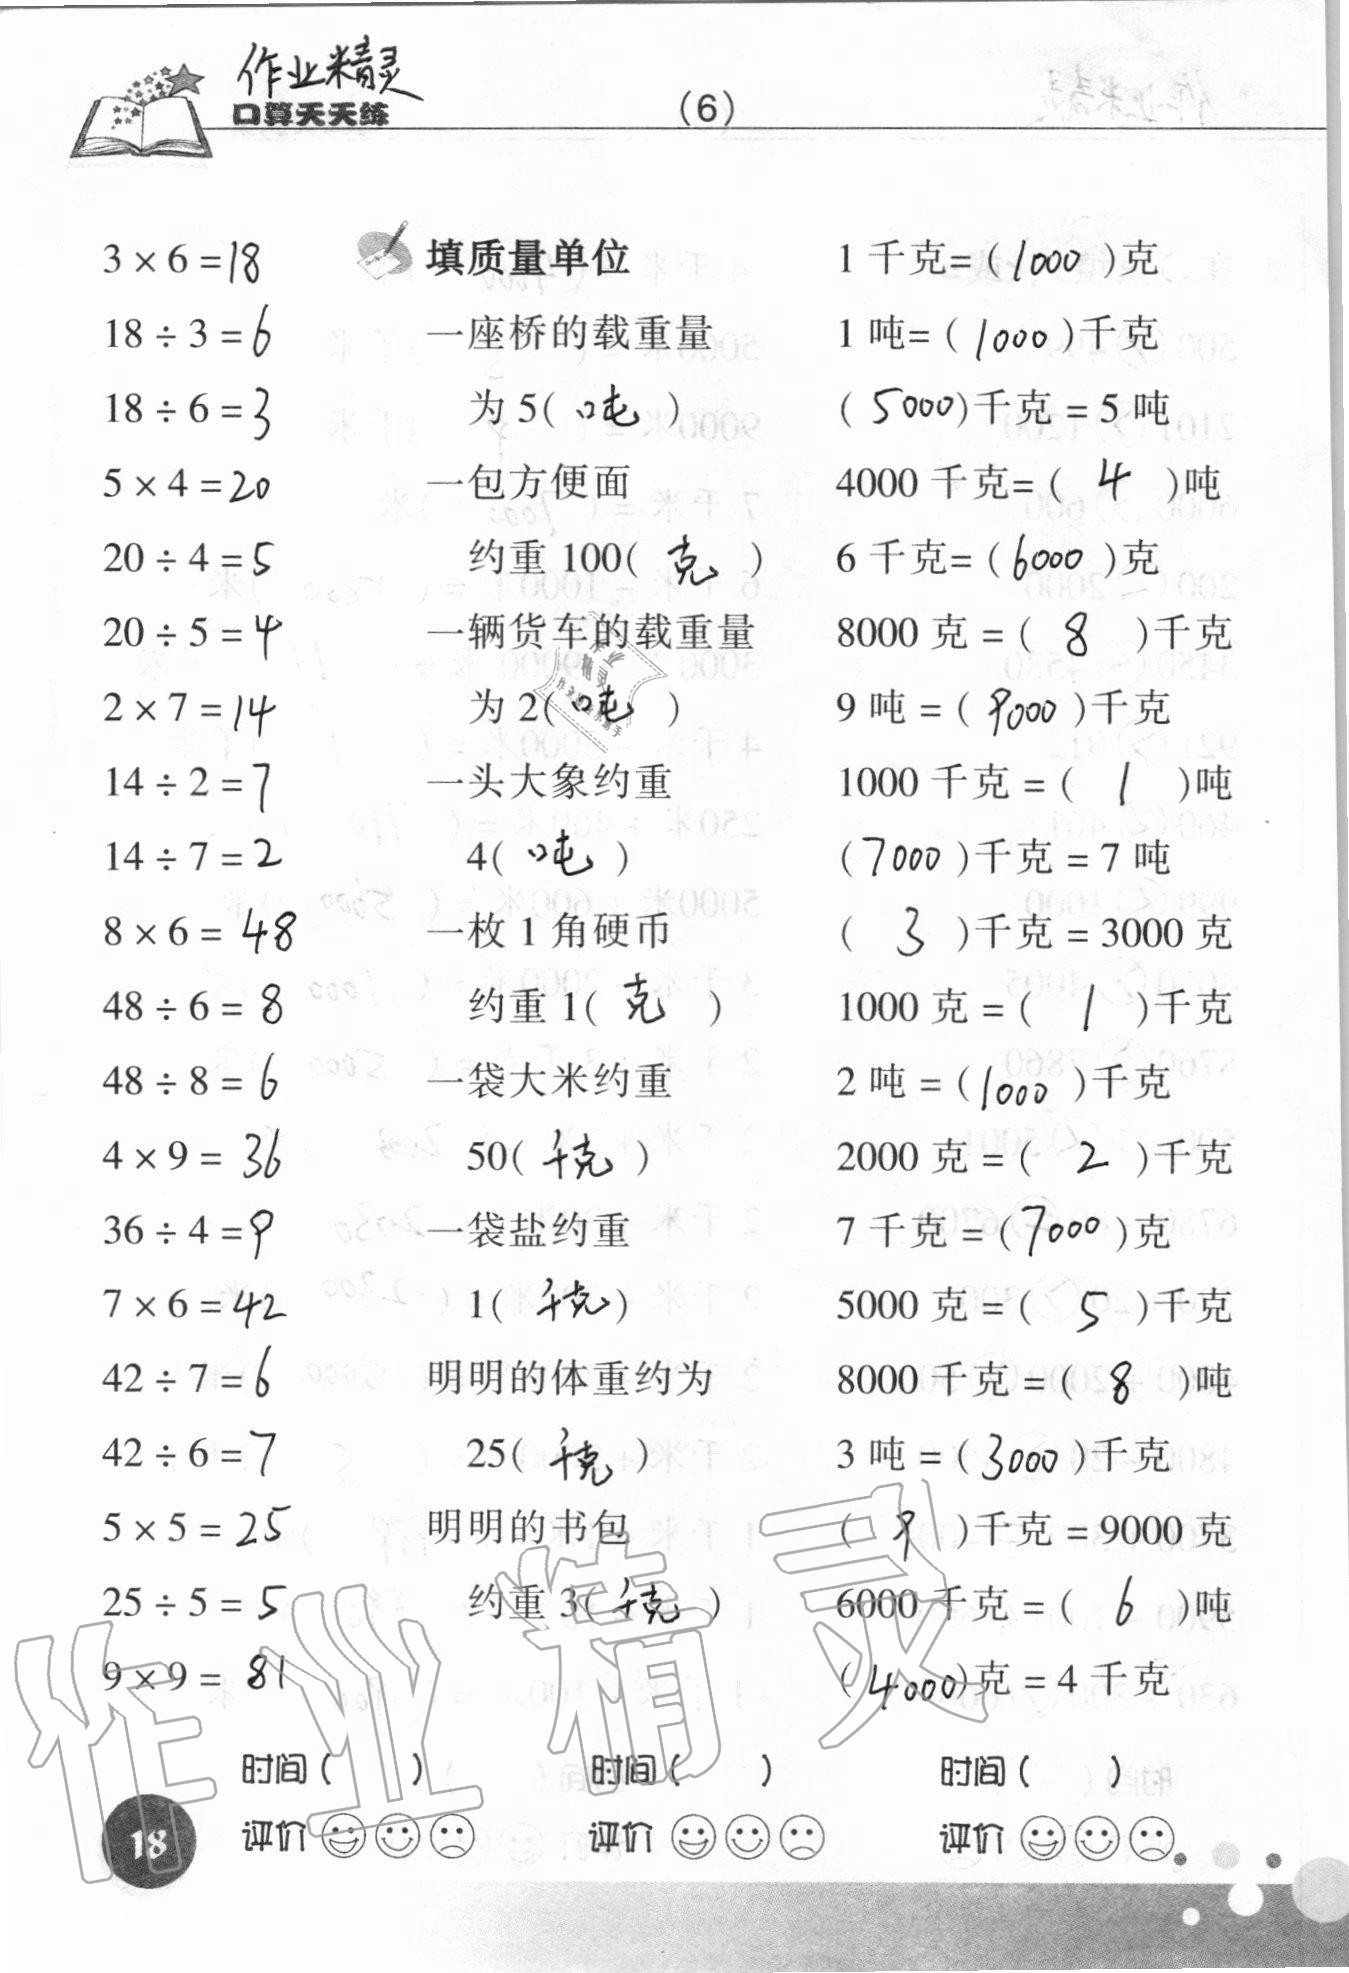 作业精灵
口算天天练
(6)
3 × 6 = 18
18 ÷ 3 = 6
18 ÷ 6 = 3
5 × 4 = 20
20 ÷ 4 = 5
20 ÷ 5 = 4
2 × 7 = 14
14 ÷ 2 = 7
14 ÷ 7 = 2
8 × 6 = 48
48 ÷ 6 = 8
48 ÷ 8 = 6
4 × 9 = 36
36 ÷ 4 = 9
7 × 6 = 42
42 ÷ 7 = 6
42 ÷ 6 = 7
5 × 5 = 25
25 ÷ 5 = 5
9 × 9 = 81
时间( )
评价
填质量单位
一座桥的载重量
为 5( 吨 )
一包方便面
约重 100( 克 )
一辆货车的载重量
为 2( 吨 )
一头大象约重
4( 吨 )
一枚 1 角硬币
约重 1( 克 )
一袋大米约重
50( 千克 )
一袋盐约重
1( 千克 )
明明的体重约为
25( 千克 )
明明的书包
约重 3( 千克 )
时间( )
评价
1 千克= ( 1000 )克
1 吨= ( 1000 )千克
( 5000 )千克 = 5 吨
4000 千克= ( 4 )吨
6 千克= ( 6000 )克
8000 克 = ( 8 )千克
9 吨 = ( 9000 )千克
1000 千克 = ( 1 )吨
( 7000 )千克 = 7 吨
( 3 )千克 = 3000 克
1000 克 = ( 1 )千克
2 吨 = ( 1000 )千克
2000 克 = ( 2 )千克
7 千克 = ( 7000 )克
5000 克 = ( 5 )千克
8000 千克 = ( 8 )吨
3 吨 = ( 3000 )千克
( 9 )千克 = 9000 克
6000 千克 = ( 6 )吨
( 4000 )克 = 4 千克
时间( )
评价
18
作业精灵